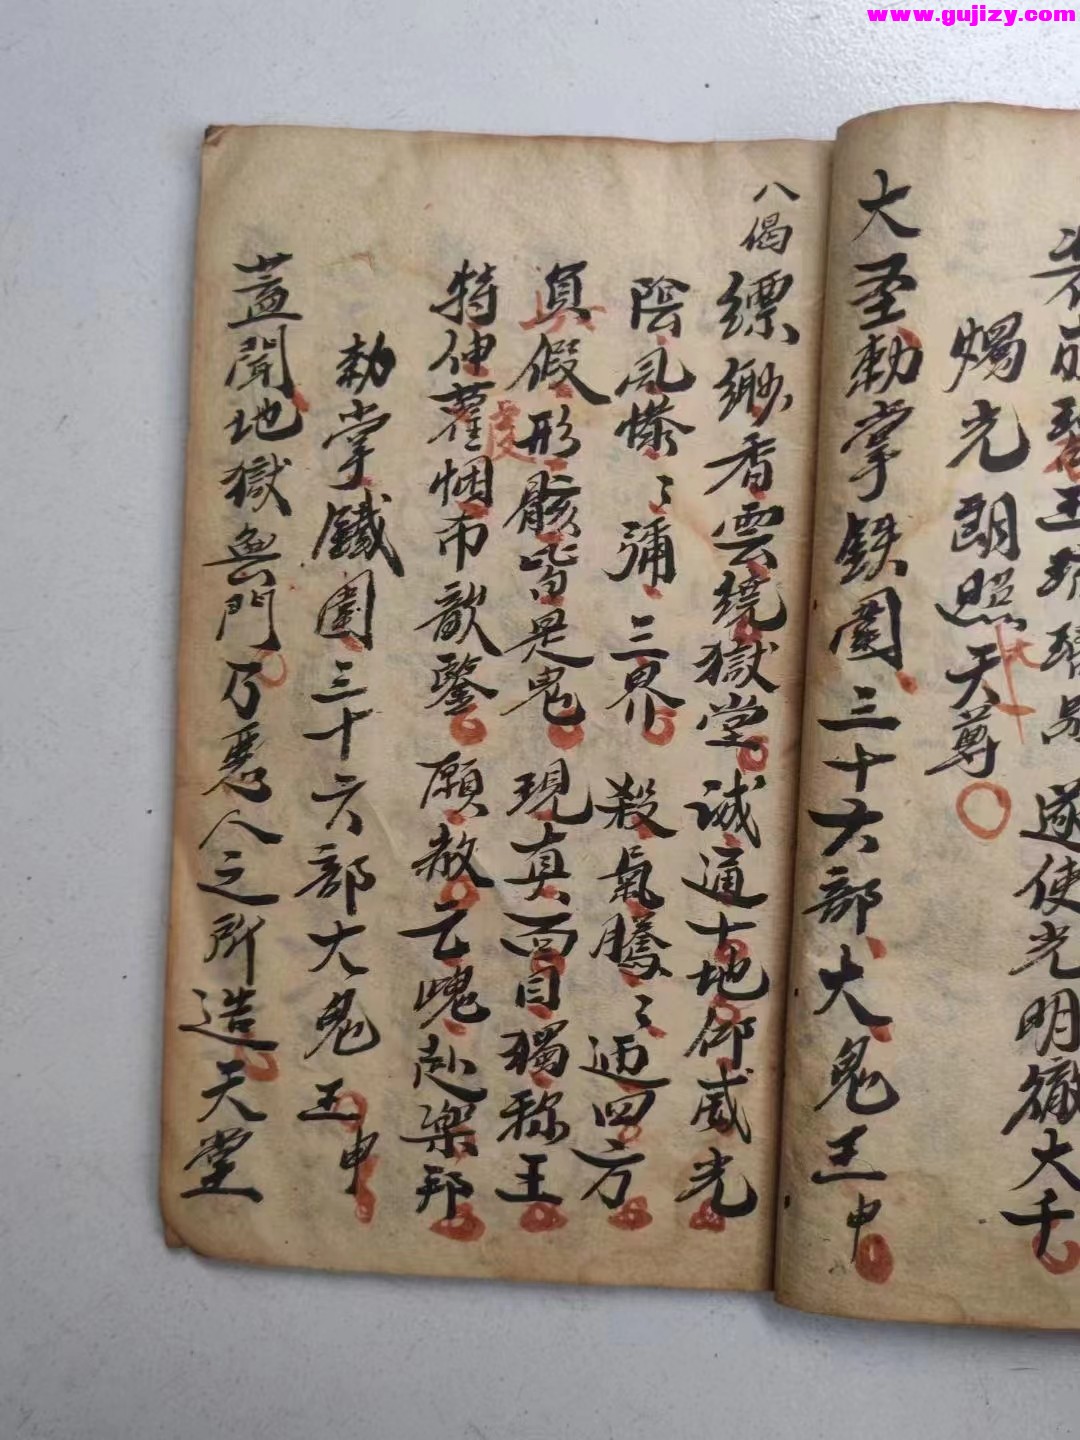 www.gujizy.com
遂使光明徹大千
燭光朗照天尊
大圣勅掌鉄圍三十六部大鬼王申
八偈
縹緲香雲繞獄堂 誠通十地仰威光
陰風慘〻彌三界 殺氣騰〻迊四方
負假形骸皆是鬼 現真面目獨称王
特伸藿烟希歆鑒 願赦亡魂赴樂邦
虔
勅掌鐵圍三十六部大鬼王申
蓋聞地獄無門乃惡人之所造天堂